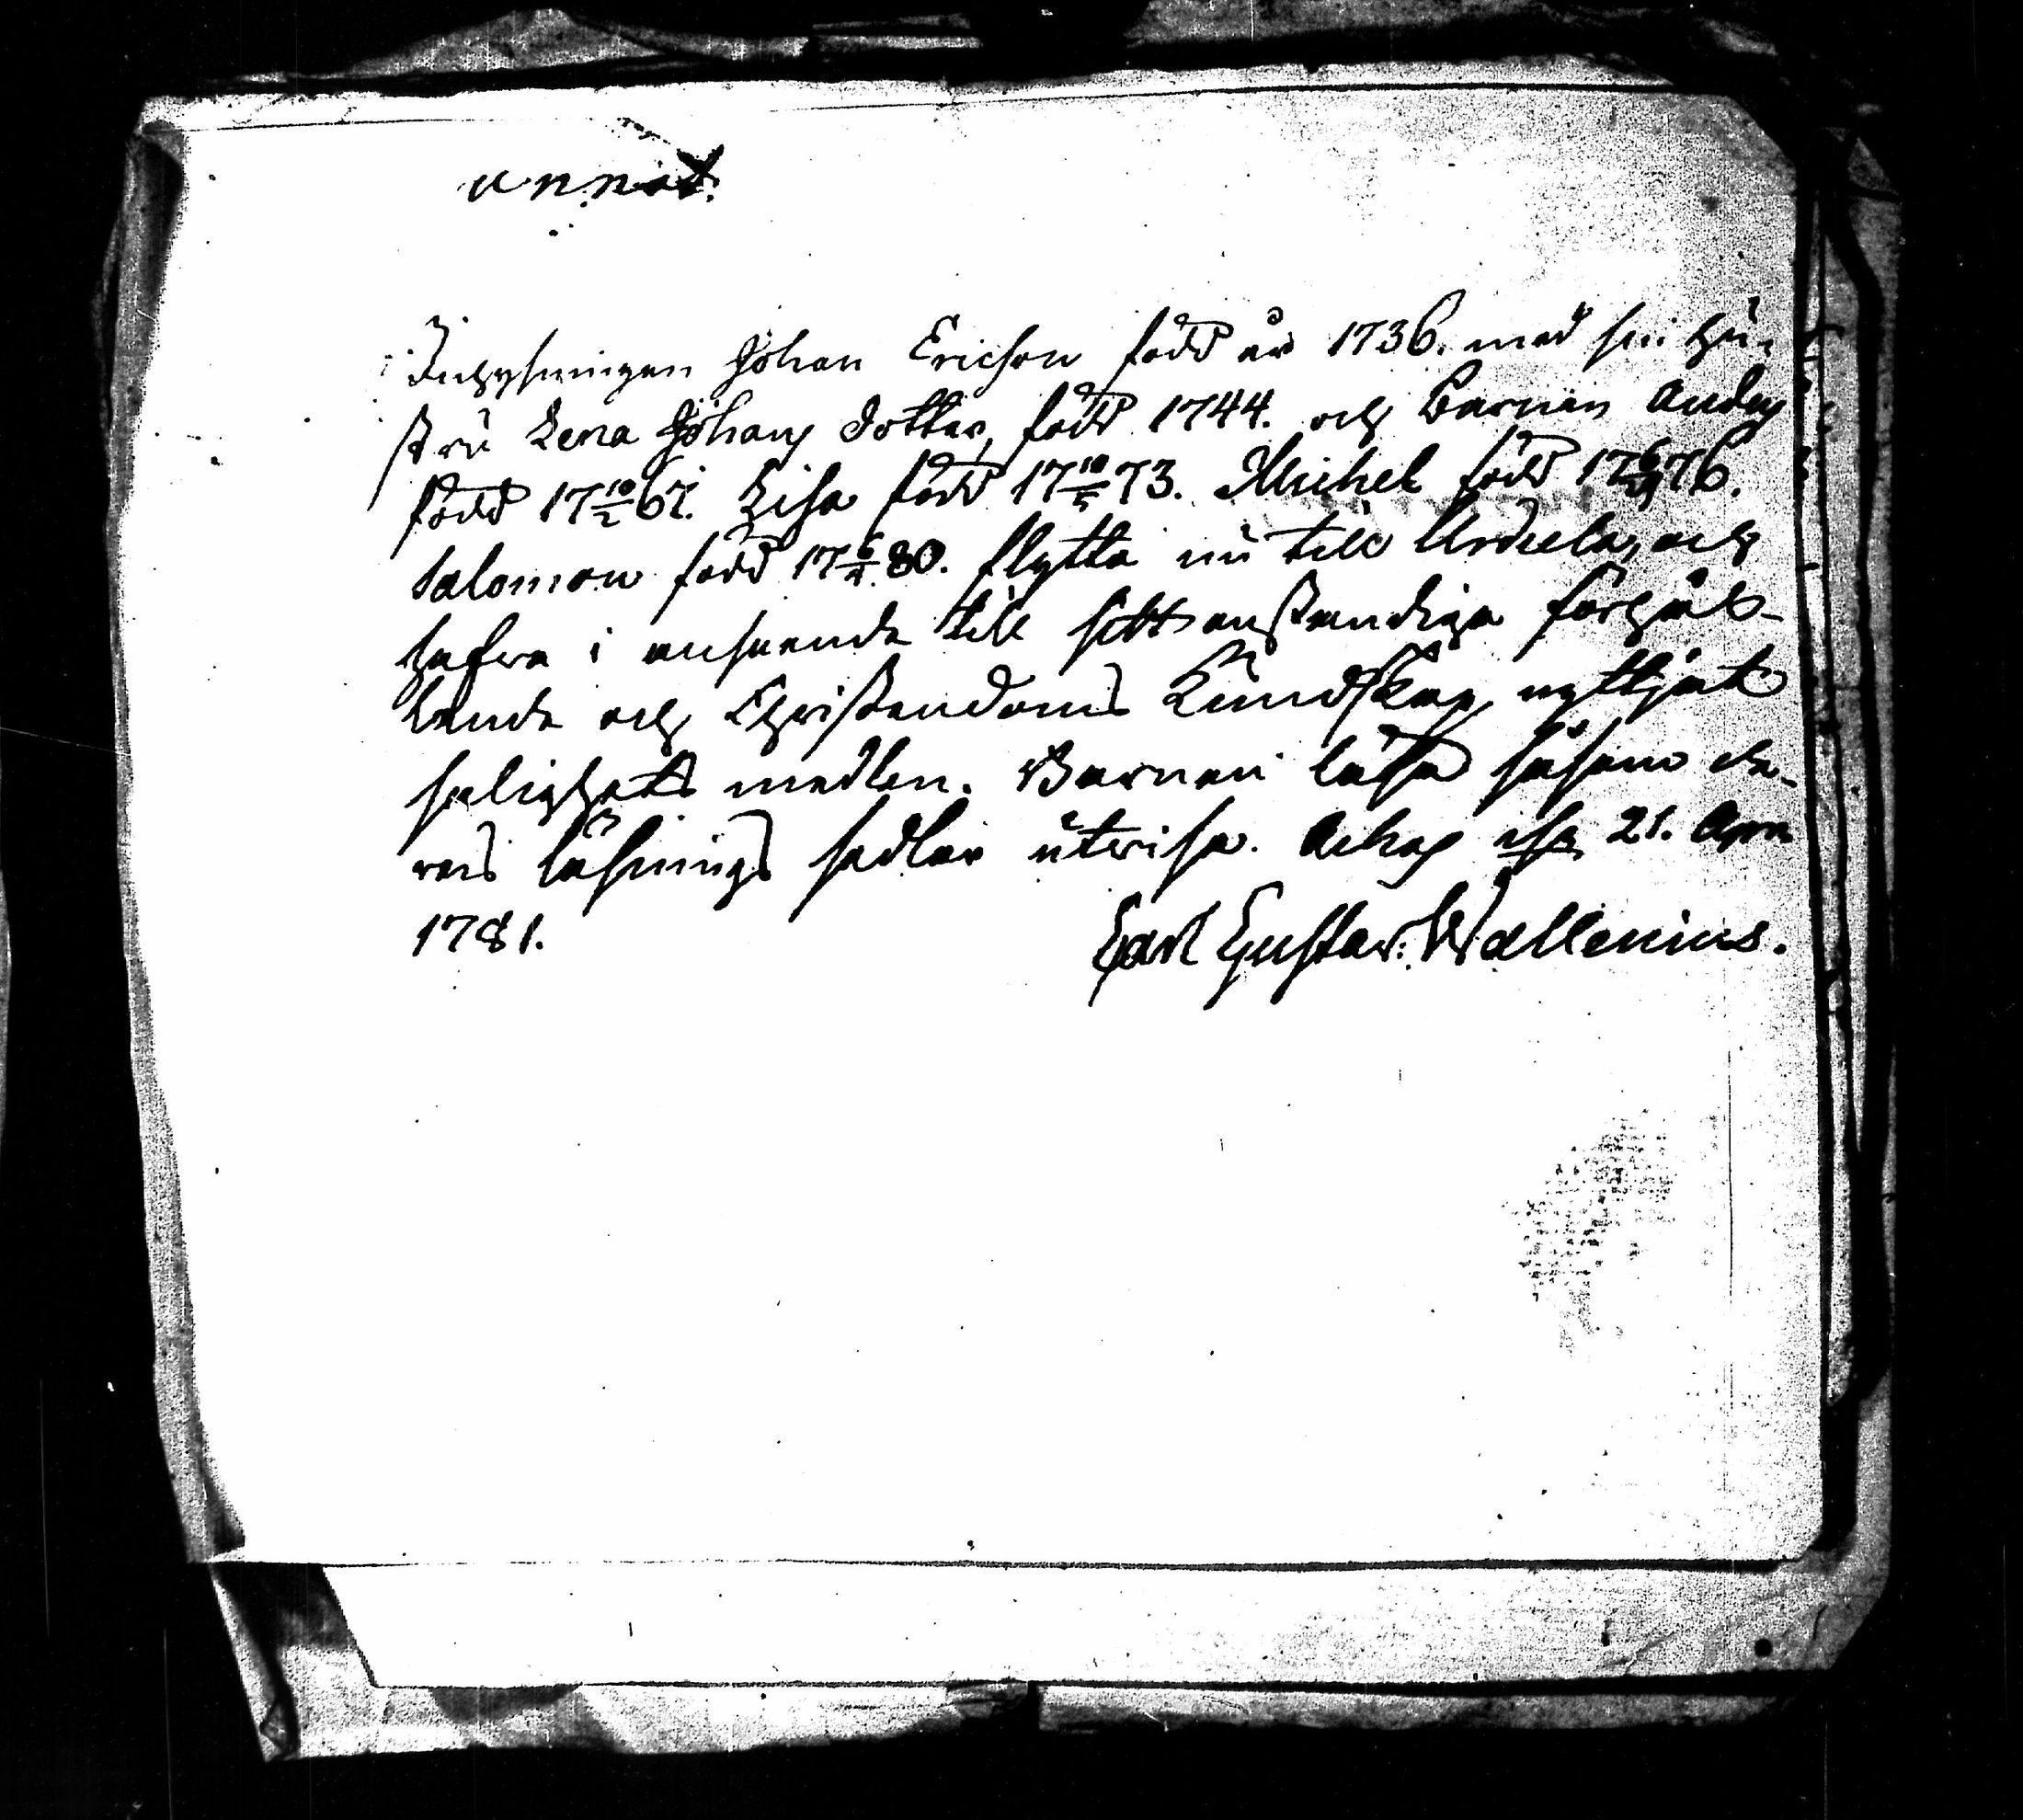 annot.
Inhysningen Johan Ericson född år 1736. med sin hu-
stru Lena Johans dotter, född 1744. och Barnen Anders
född 17 10/2 67. Lisa född 17 10/5 73. Michel född 76.
Salomon född 17 80. flytta nu till Urdiala, och
hafva i anseende till sitt anständiga förhål-
lande och Christendoms Kundskap nyttjat
salighets medlen. Barnen läsa såsom de-
ras läsnings sedlar utvisa. Ackas 21. Apr
1781. Carl Gustav: Wallenius.